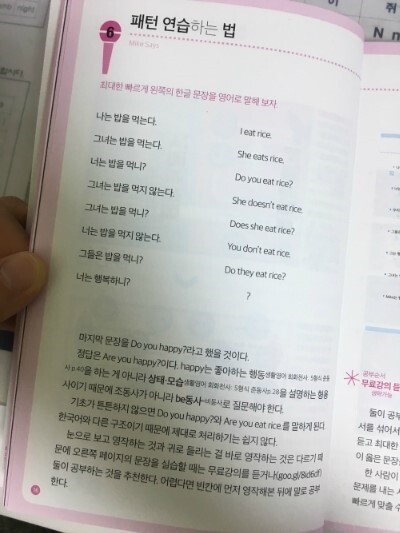 6
패턴 연습하는 법
Mike Says
최대한 빠르게 왼쪽의 한글 문장을 영어로 말해 보자
나는 밥을 먹는다. I eat rice.
그녀는 밥을 먹는다. She eats rice.
너는 밥을 먹니? Do you eat rice?
그녀는 밥을 먹지 않는다. She doesn't eat rice.
그녀는 밥을 먹니? Does she eat rice?
너는 밥을 먹지 않는다. You don't eat rice.
그들은 밥을 먹니? Do they eat rice?
너는 행복하니? ?
마지막 문장을 Do you happy?라고 했을 것이다.
정답은 Are you happy?이다. happy는 좋아하는 행동생활영어 회화천사: 5형식 준동
사 p.40을 하는 게 아니라 상태·모습생활영어 회화천사: 5형식 준동사 p.28을 설명하는 형용
사이기 때문에 조동사가 아니라 be동사-비동사로 질문해야 한다.
기초가 튼튼하지 않으면 Do you happy?와 Are you eat rice.를 말하게 된다
한국어와 다른 구조이기 때문에 제대로 처리하기는 쉽지 않다.
눈으로 보고 영작하는 것과 귀로 들리는 걸 바로 영작하는 것은 다르기 때
문에 오른쪽 페이지의 문장을 실습할 때는 무료강의를 듣거나(goo.gl/8id6df)
둘이 공부하는 것을 추천한다. 어렵다면 빈칸에 먼저 영작해본 뒤에 말로 공부
한다.
공부순서
무료강의 듣
생략가능
둘이 공부
서를 섞어서
듣고 최대한
이 옳은 문장
한 사람이
문제를 내는
빠르게 맞출 수